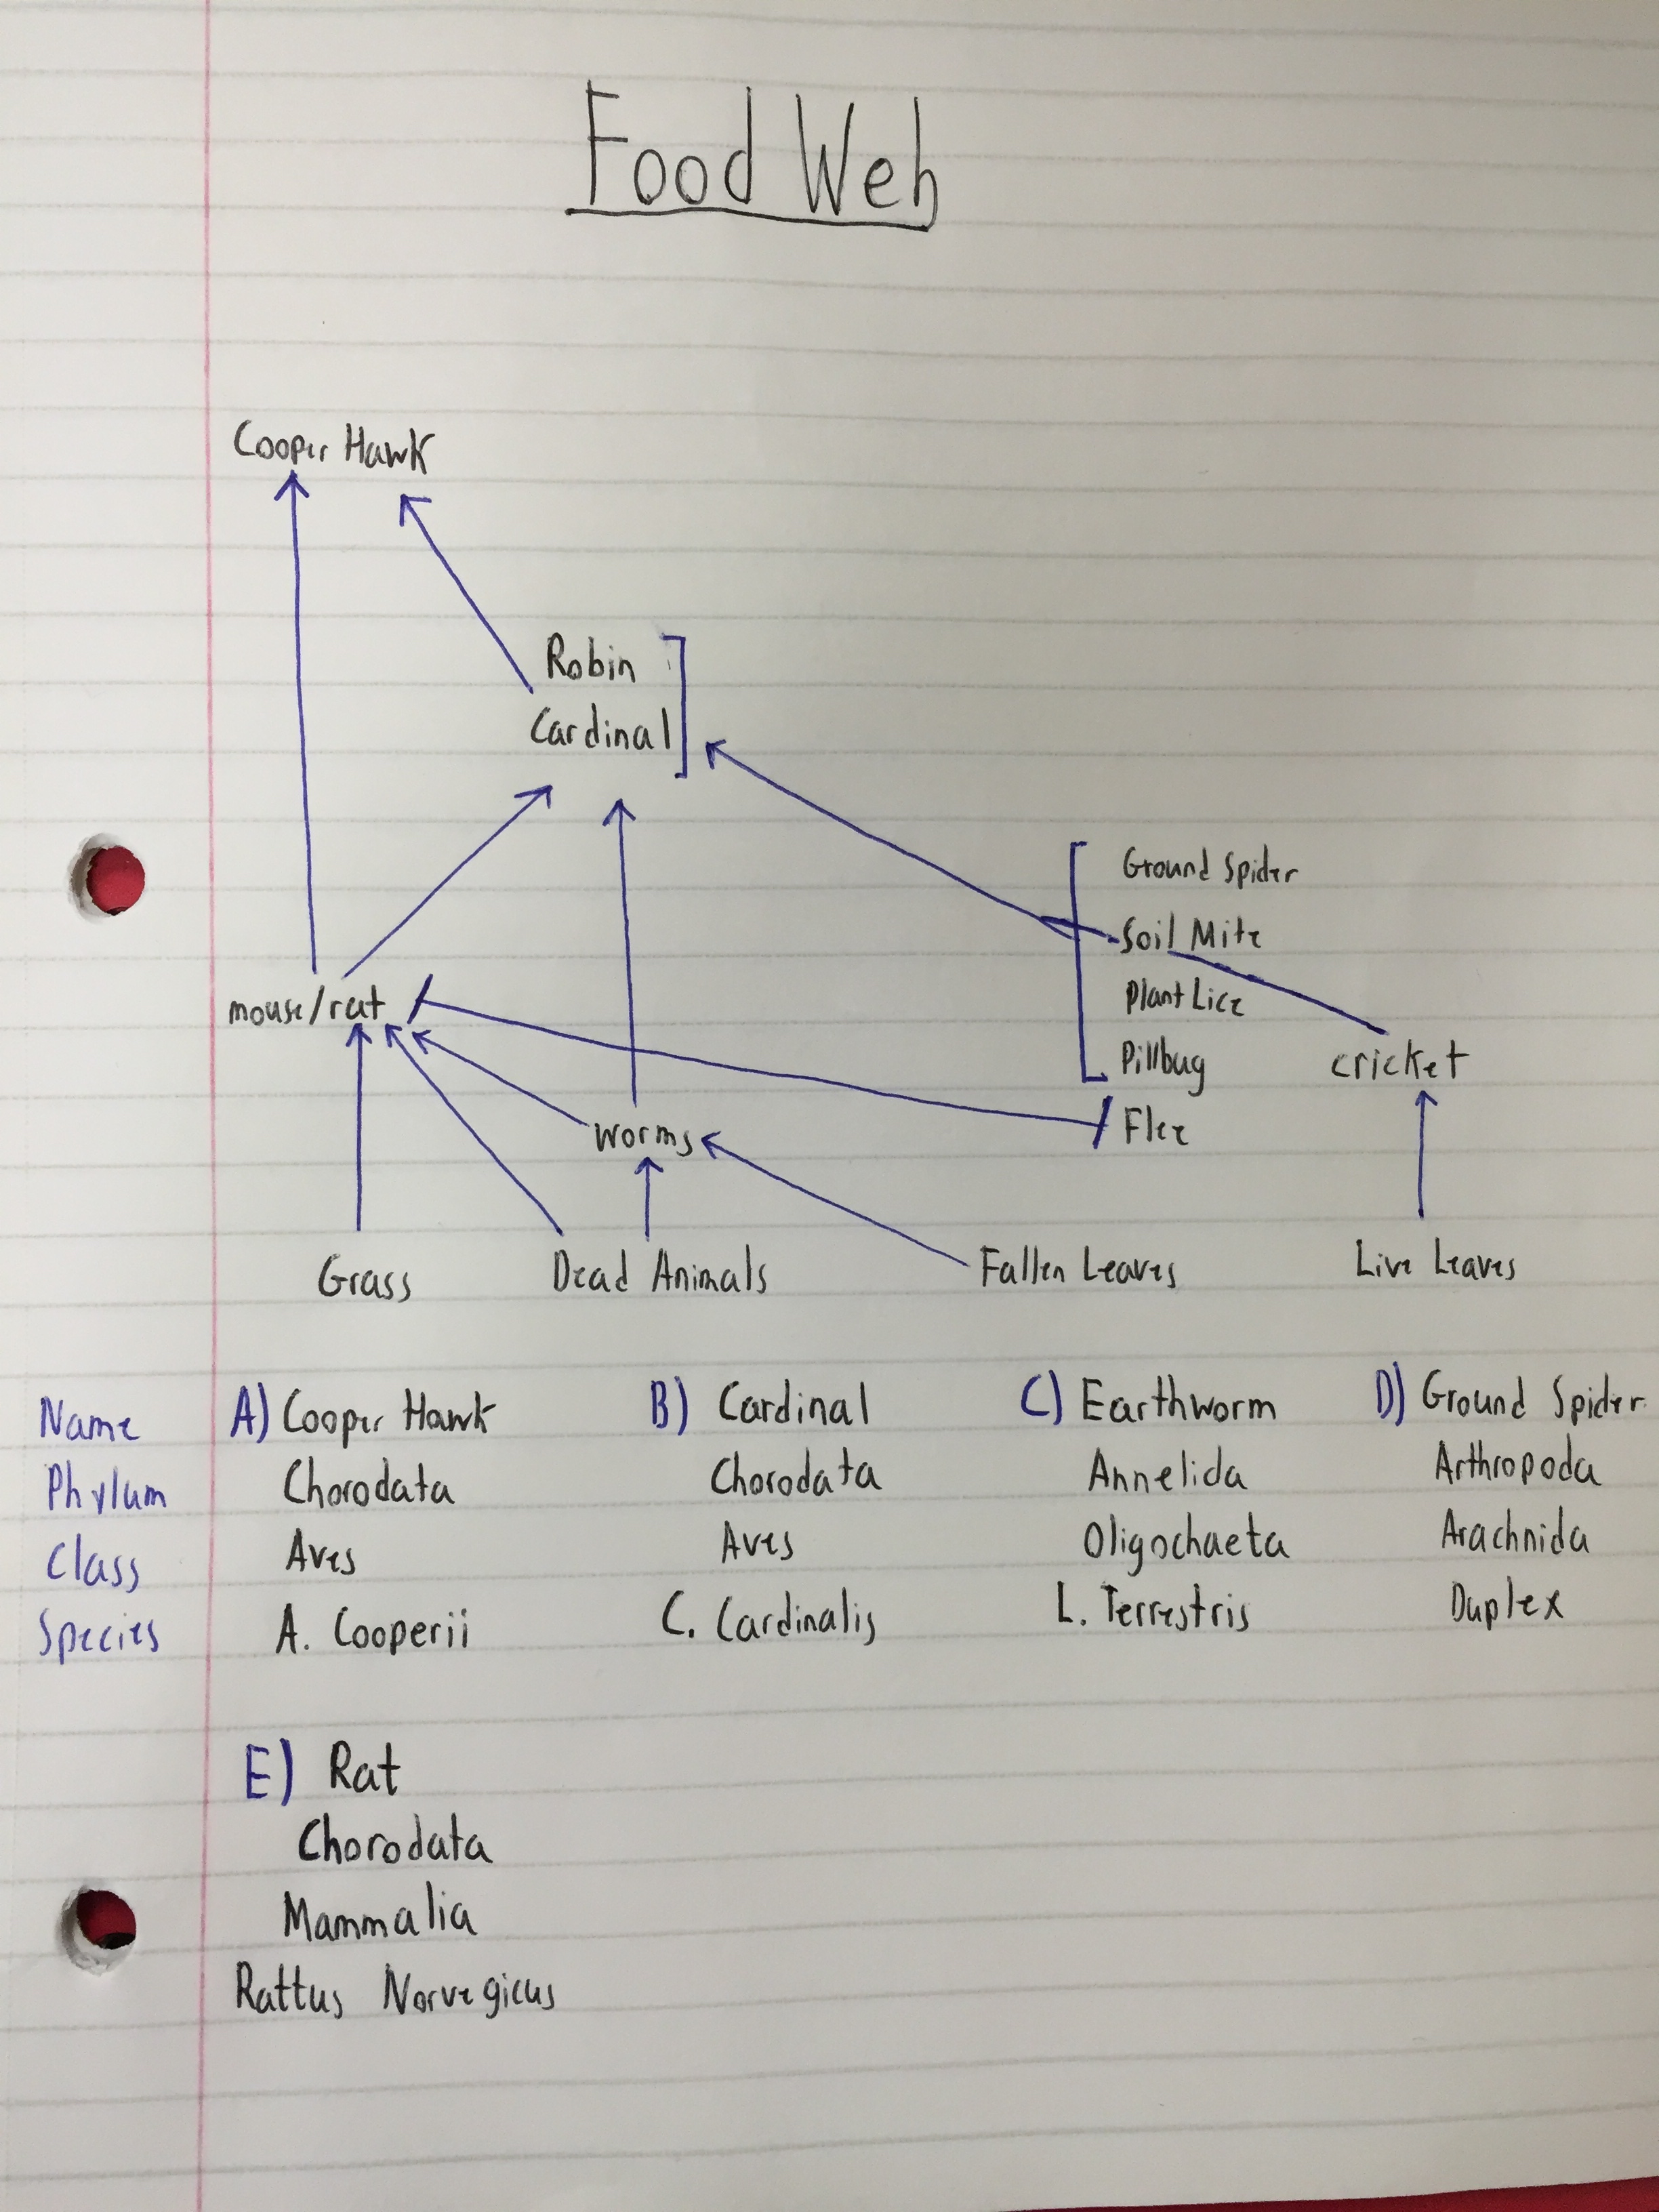 Food Web
Cooper Hawk
Robin
Cardinal
Ground Spider
Soil Mite
Plant Lice
Pillbug
Flee
cricket
mouse/rat
worms
Grass
Dead Animals
Fallen Leaves
Live Leaves
Name A) Cooper Hawk B) Cardinal C) Earthworm D) Ground Spider
Phylum Chorodata Chorodata Annelida Arthropoda
Class Aves Aves Oligochaeta Arachnida
Species A. Cooperii C. Cardinalis L. Terrestris Duplex
E) Rat
Chorodata
Mammalia
Rattus Norvegicus